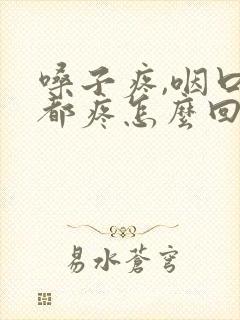 嗓子疼,咽口
都疼怎麼回
易水蒼穹